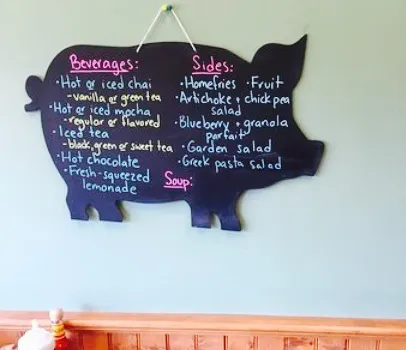 Beverages:
• Hot or iced chai
- vanilla or green tea
• Hot or iced mocha
- regular or flavored
• Iced tea
- black, green or sweet tea
• Hot chocolate
• Fresh-squeezed
lemonade
Sides:
• Homefries • Fruit
• Artichoke + chick pea
salad
• Blueberry + granola
parfait
• Garden salad
• Greek pasta salad
Soup: